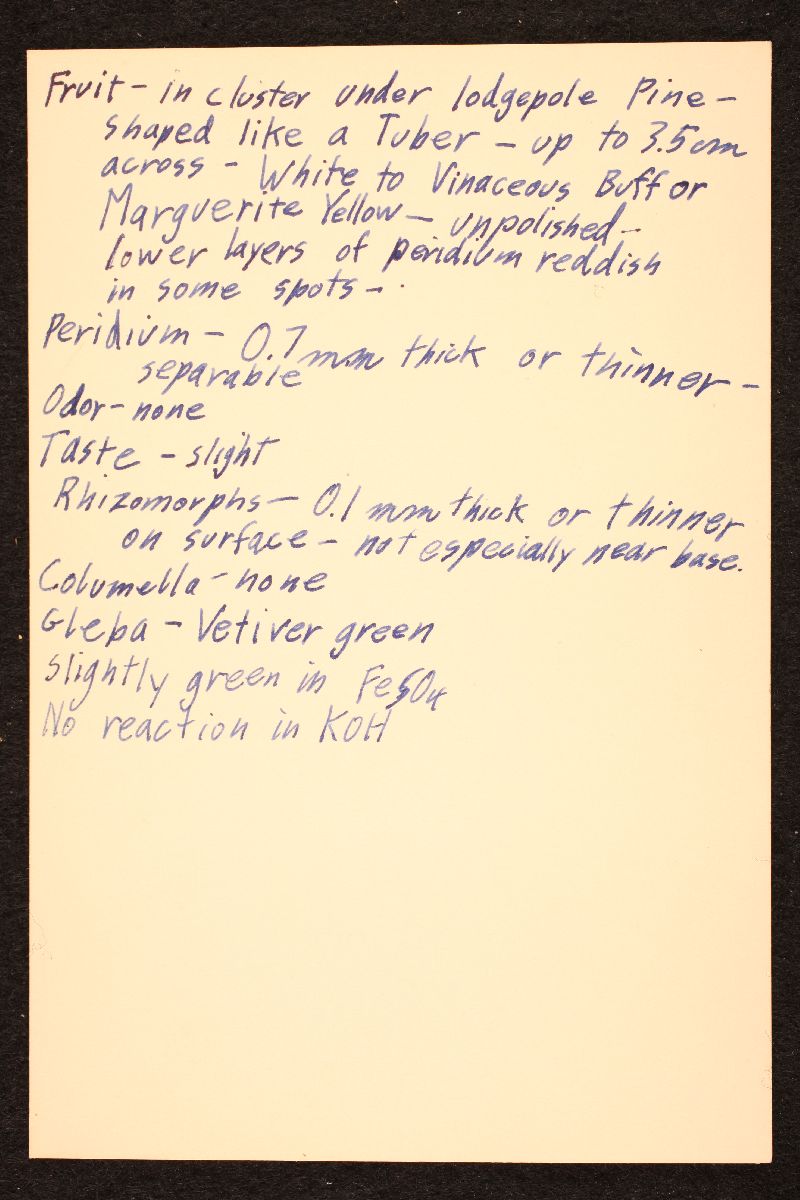 Fruit - in cluster under lodgepole Pine -
shaped like a Tuber - up to 3.5 cm
across - White to Vinaceous Buff or
Marguerite Yellow - unpolished -
lower layers of peridium reddish
in some spots -
Peridium - 0.7 mm thick or thinner -
separable
Odor - none
Taste - slight
Rhizomorphs - 0.1 mm thick or thinner
on surface - not especially near base.
Columella - none
Gleba - Vetiver green
Slightly green in FeSO4
No reaction in KOH